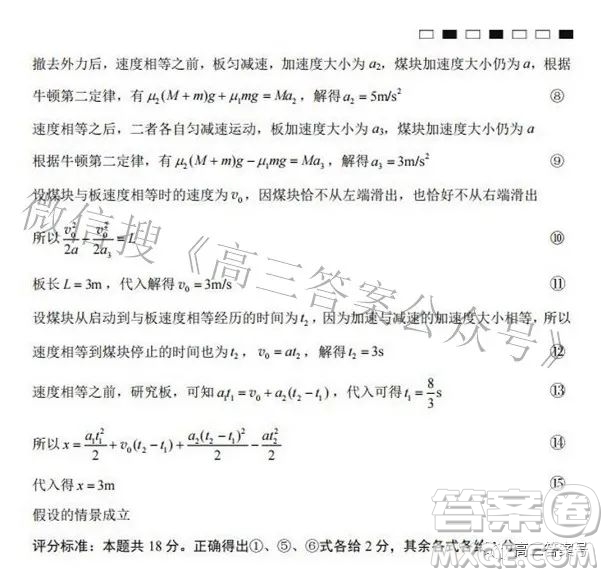 撤去外力后，速度相等之前，板匀减速，加速度大小为 a₂，煤块加速度大小仍为 a，根据
牛顿第二定律，有 μ₂(M + m)g + μ₁mg = Ma₂，解得 a₂ = 5m/s² ⑧
速度相等之后，二者各自匀减速运动，板加速度大小为 a₃，煤块加速度大小仍为 a
根据牛顿第二定律，有 μ₂(M + m)g − μ₁mg = Ma₃，解得 a₃ = 3m/s² ⑨
设煤块与板速度相等时的速度为 v₀，因煤块恰不从左端滑出，也恰好不从右端滑出
所以 v₀²/2a + v₀²/2a₃ = L ⑩
板长 L = 3m，代入解得 v₀ = 3m/s ⑪
设煤块从启动到与板速度相等经历的时间为 t₂，因为加速与减速的加速度大小相等，所以
速度相等到煤块停止的时间也为 t₂，v₀ = at₂，解得 t₂ = 3s ⑫
速度相等之前，研究板，可知 a₁t₁ = v₀ + a₂(t₂ − t₁)，代入可得 t₁ = 8/3 s ⑬
所以 x = a₁t₁²/2 + v₀(t₂ − t₁) + a₂(t₂ − t₁)²/2 − at₂²/2 ⑭
代入得 x = 3m ⑮
假设的情景成立
评分标准：本题共 18 分。正确得出①、⑤、⑥式各给 2 分，其余各式各给
微信搜《高三答案公众号》
答案圈
高三答案号